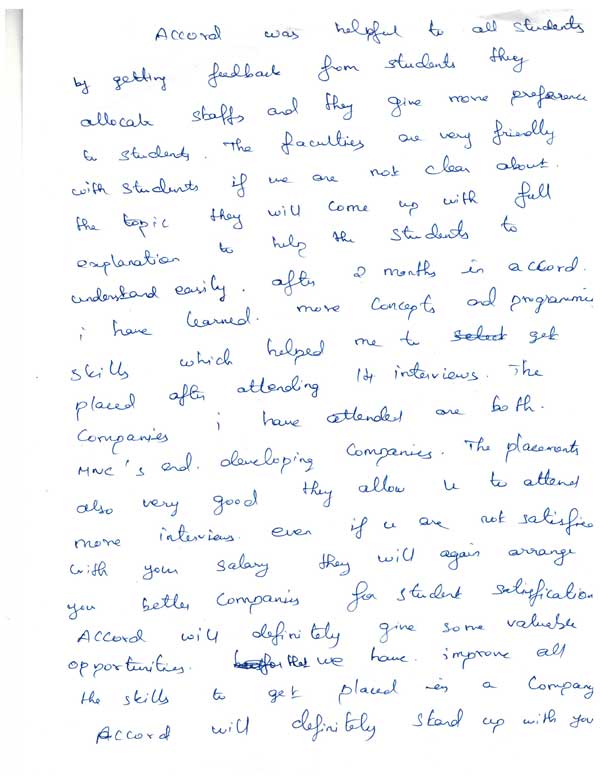 Accord was helpful to all students
by getting feedback from students they
allocate staffs and they give more preference
to students. The faculties are very friendly
with students if we are not clear about.
the topic they will come up with full
explanation to help the students to
understand easily. after 2 months in accord.
i have learned. more concepts and programmi
skills which helped me to select get
placed after attending 14 interviews. The
Companies i have attended are both.
MNC's and. developing Companies. The placements
also very good they allow u to attend
more interviews even if u are not satisfied
with your salary they will again arrange
you better Companies for student satisfication
Accord will definitely give some valuable
opportunities. we have. improve all
the skills to get placed in a Company
Accord will definitely stand up with you